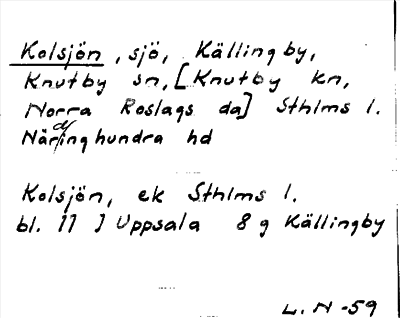 Kolsjön, sjö, Källingby,
Knutby sn, [Knutby kn,
Norra Roslags da] Sthlms l.
Närdinghundra hd
Kolsjön, ek Sthlms l.
bl. 11 J Uppsala 8 g Källingby
L.N -59